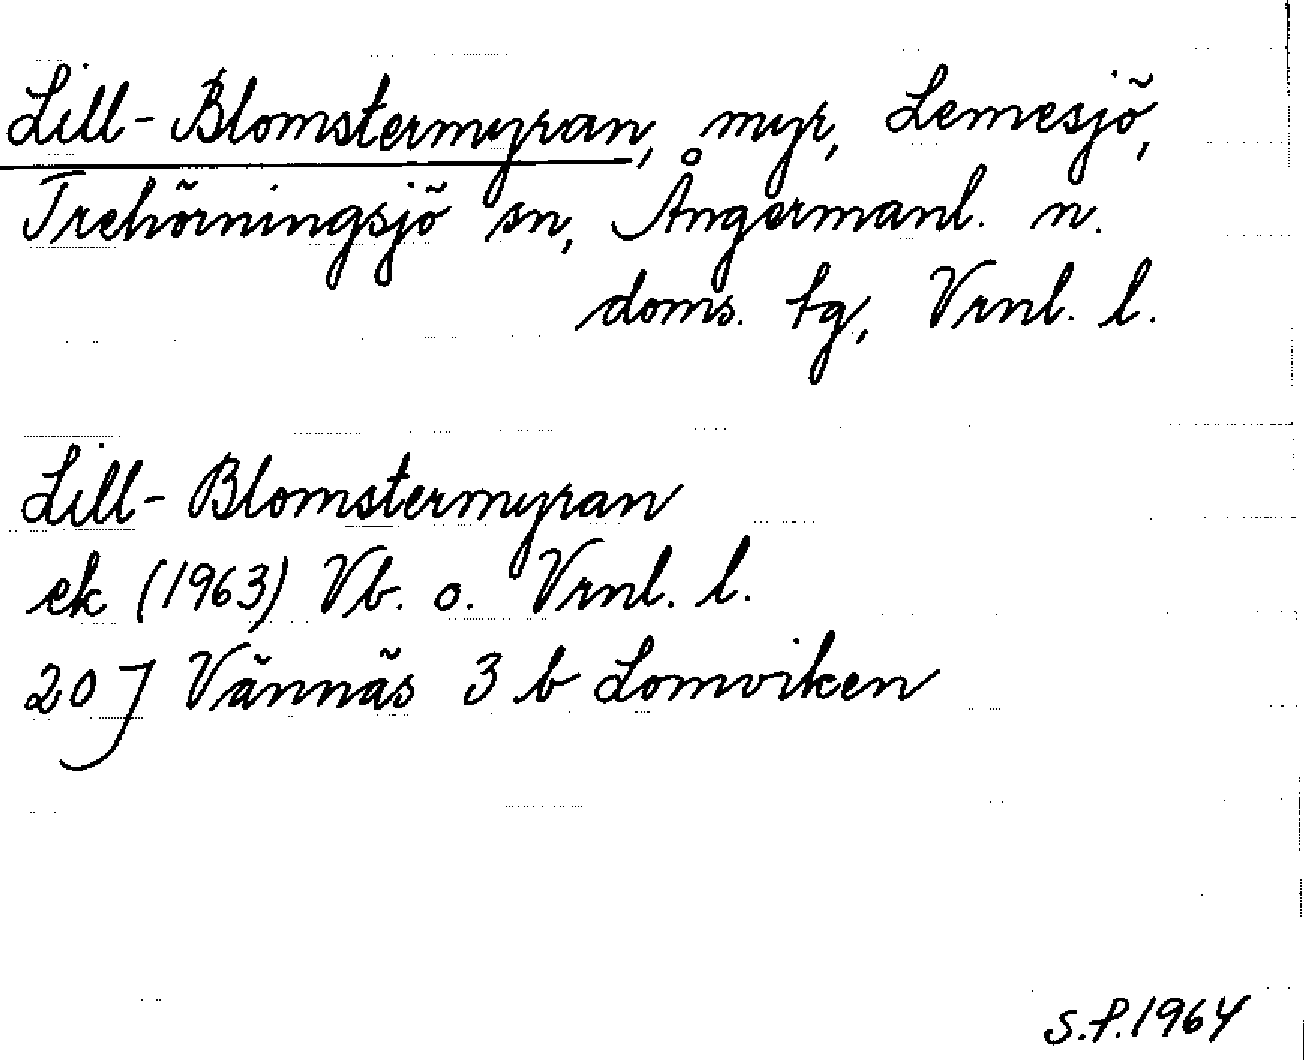 Lill-Blomstermyran, myr, Lemesjö,
Trehörningsjö sn, Ångermanl. n.
doms. tg, Vrnl. l.
Lill-Blomstermyran
ek (1963) Vb. o. Vrnl. l.
20 J Vännäs 3 b Lomviken
S.P. 1964